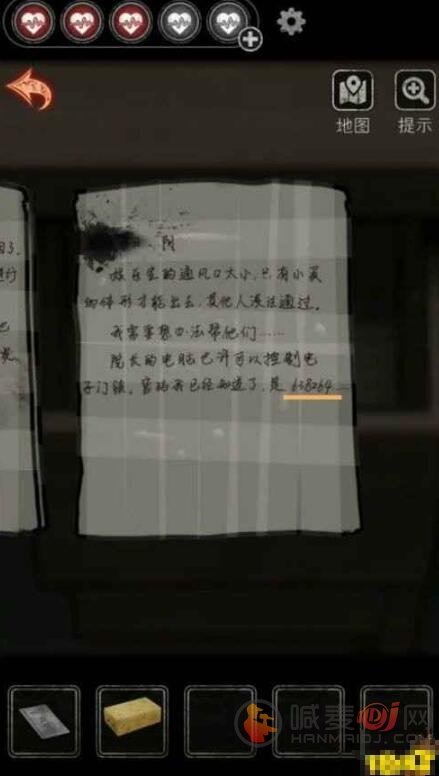 地图
提示
阴
娱乐室的通风口太小，只有小英
的体形才能出去，其他人没法通过。
我需要想办法帮他们……
院长的电脑也许可以控制电
子门锁，密码我已经知道了，是 638264
喊麦DJ网
HANMAIDJ.COM